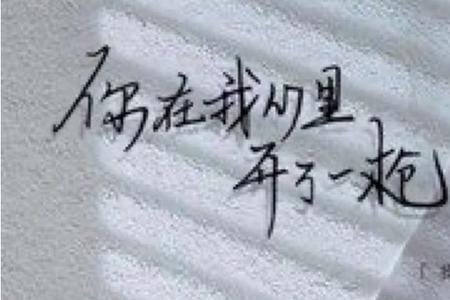 你在我心里
开了一枪